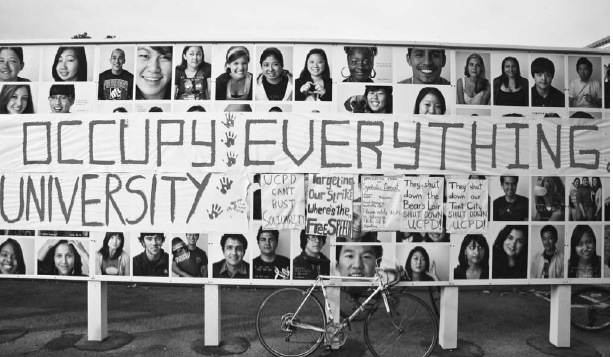 OCCUPY EVERYTHING
UNIVERSITY
UCPD
CAN'T
BUST
SOLIDARITY
Targeting
Our Strike
where's the
Free Speech
They shut
down the
Bears Lair
SHUT DOWN
UCPD!
They shut
down our
Tent City
SHUT DOWN
UCPD!